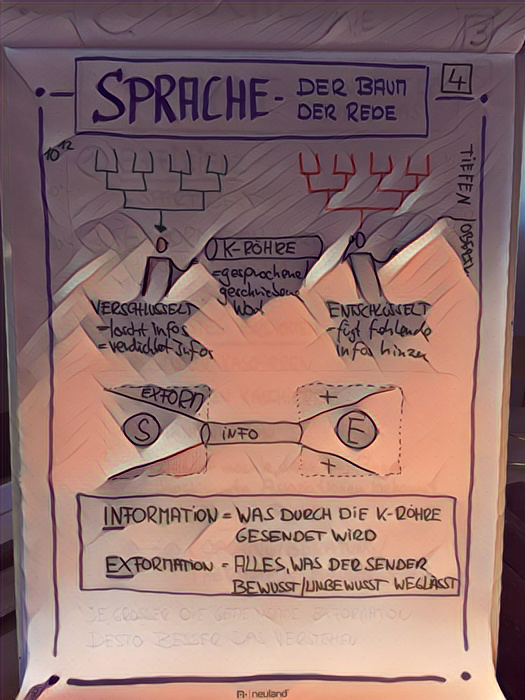 3
SPRACHE - DER BAUM
DER REDE
4
10¹²
TIEFEN
K-RÖHRE
= gesprochene
geschriebene
Wort
VERSCHLÜSSELT
- löscht Infos
= verdichtet Infos
ENTSCHLÜSSELT
- fügt fehlende
Infos hinzu
EXFORM
S
INFO
E
+
+
INFORMATION = WAS DURCH DIE K-RÖHRE
GESENDET WIRD
EXFORMATION = ALLES, WAS DER SENDER
BEWUSST/UNBEWUSST WEGLÄSST
JE GRÖSSER DIE EXFORMATION
DESTO BESSER DAS VERSTEHEN
neuland